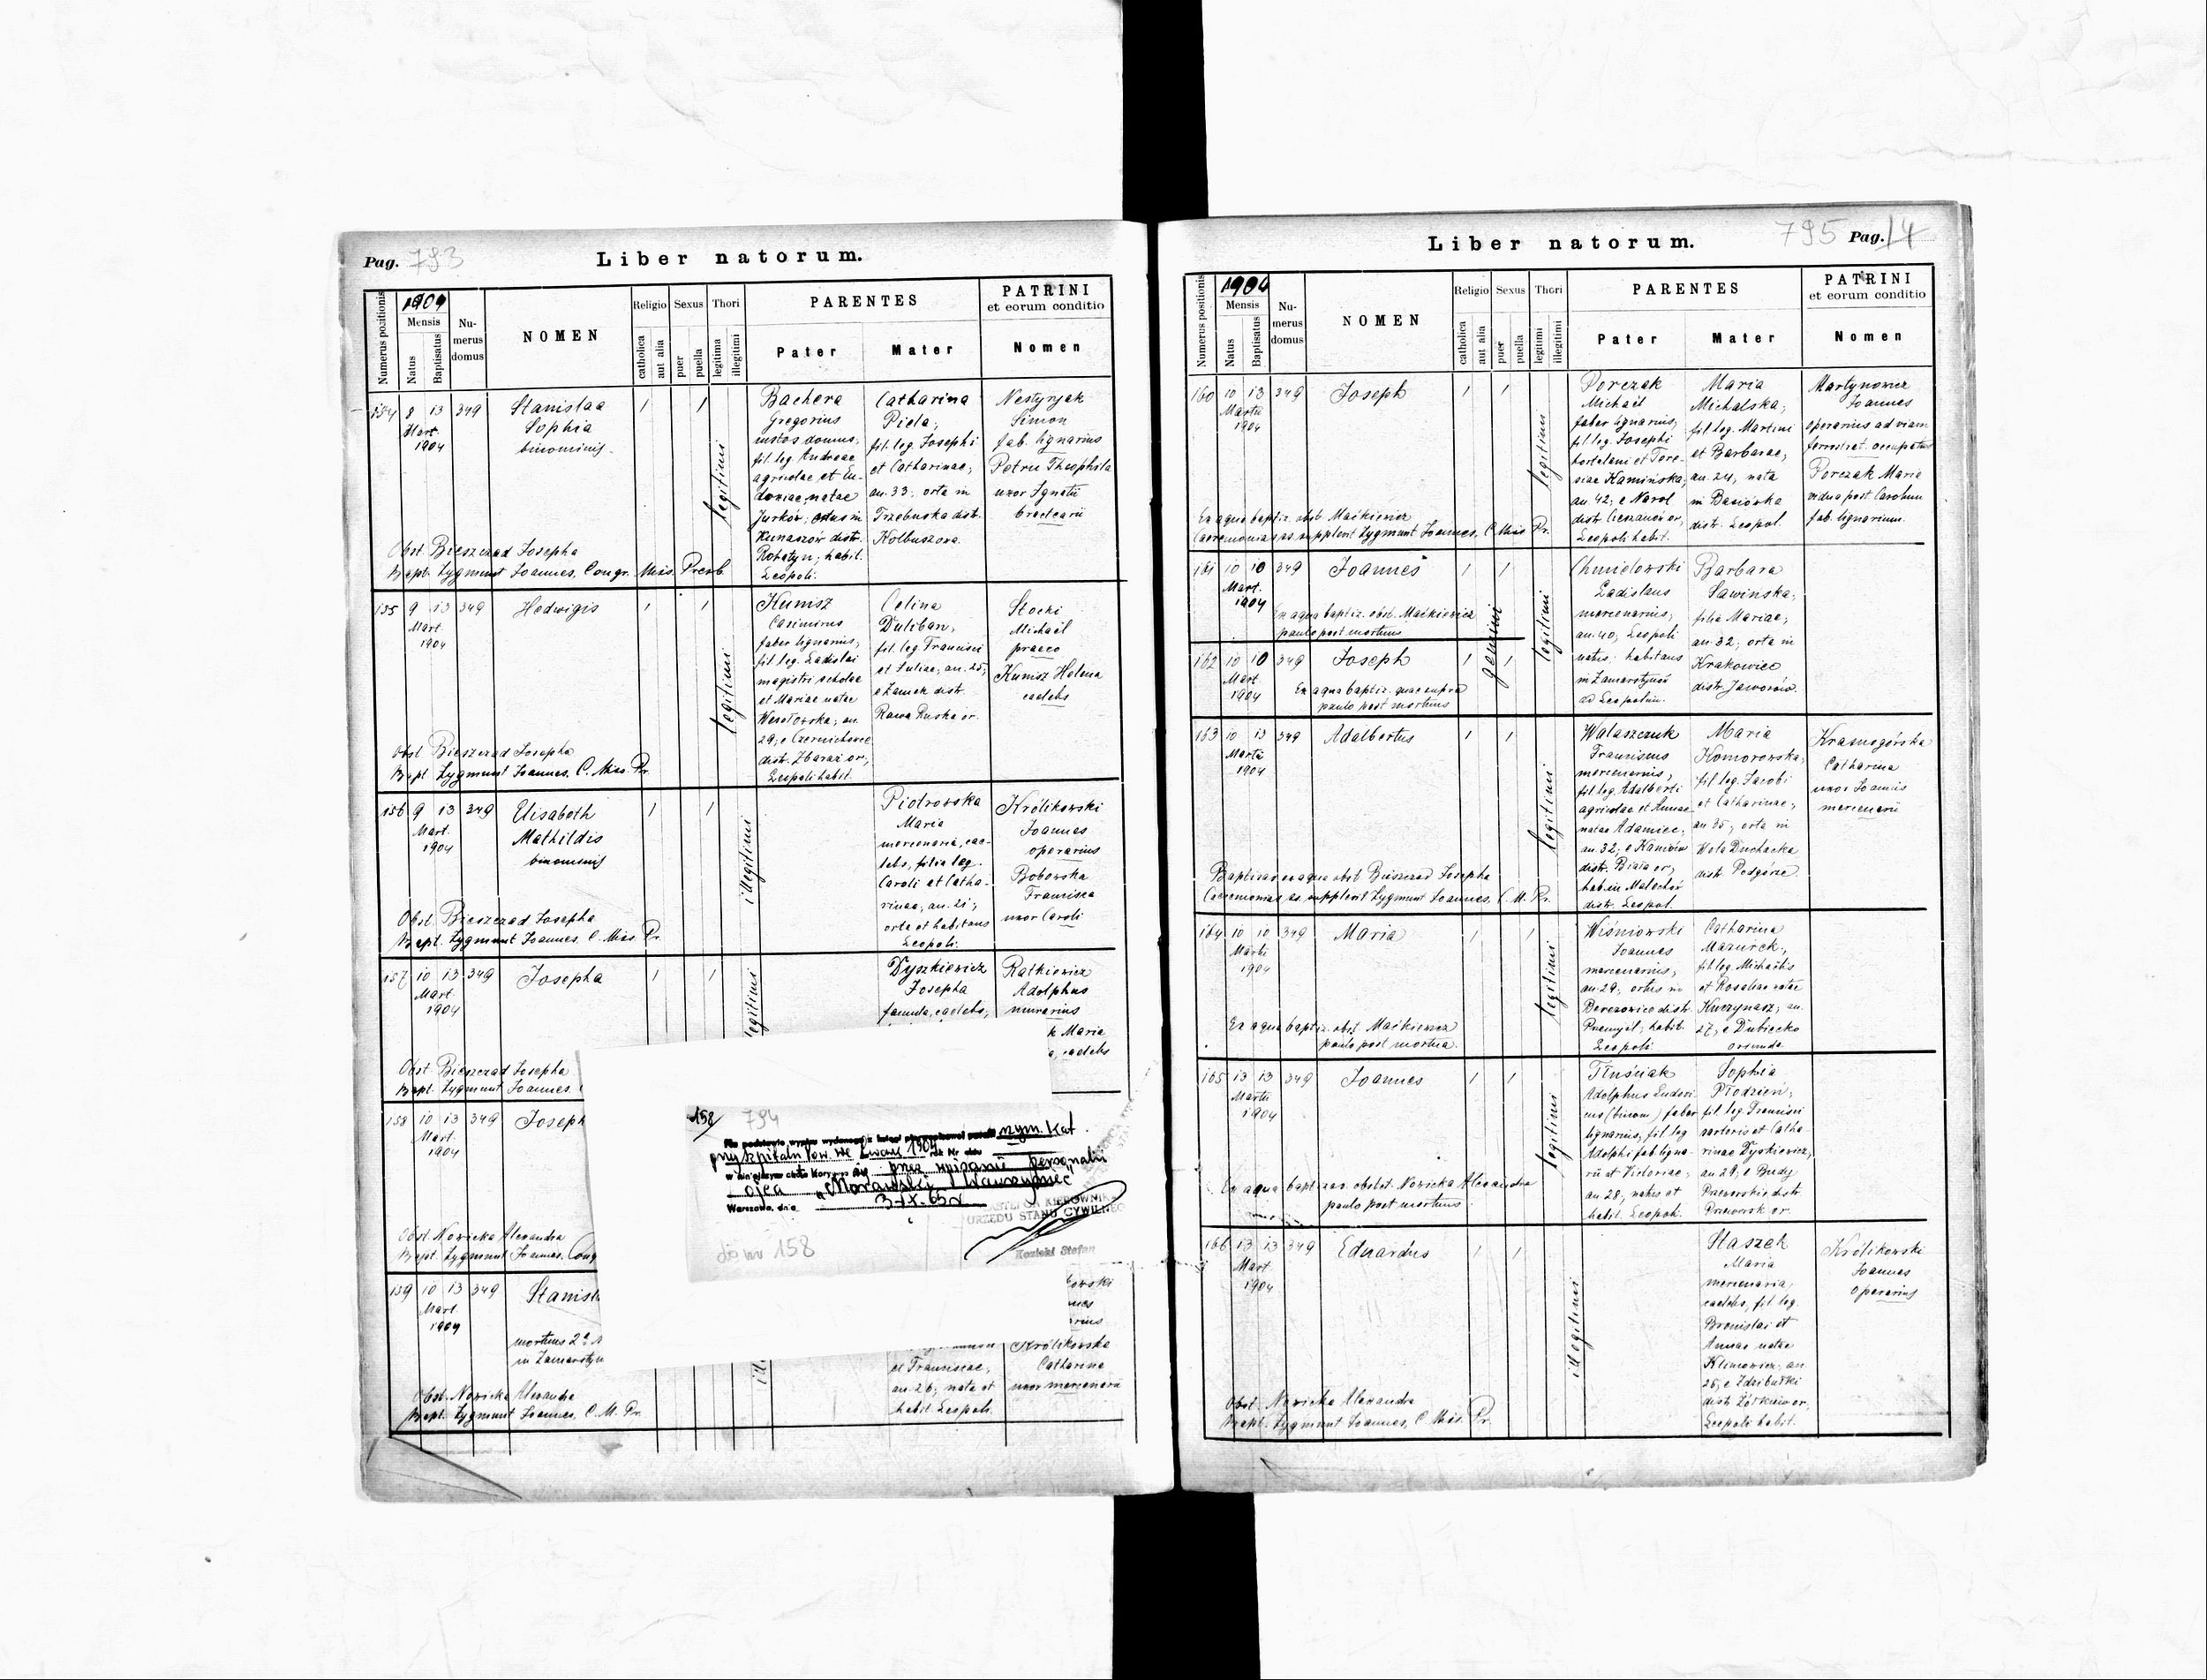 Pag. 793
Liber natorum.
Numerus positionis
1904
Mensis
Natus
Baptisatus
Nu-
merus
domus
NOMEN
Religio
catholica
aut alia
Sexus
puer
puella
Thori
legitima
illegitimi
PARENTES
Pater
Mater
PATRINI
et eorum conditio
Nomen
154 8 13 349
Mart.
1904
Stanislaa
Sophia
binominis.
1 1
legitimi
Bachera
Gregorius
custos domus,
fil. leg. Andreae
agricolae et Eu-
doxiae natae
Jurków, ortus in
Kunaszów distr.
Rohatyn; habit.
Leopoli.
Catharina
Piela,
fil. leg. Josephi
et Catharinae,
an. 33, orta in
Trzebuska distr.
Kolbuszowa.
Nestyrjak
Simon
fab. lignarius
Petru Theophila
uxor Ignatii
Obst. Bieszczad Josepha
Bapt. Zygmunt Joannes, Congr. Miss. Presb.
155 9 13 349
Mart.
1904
Hedwigis
1 1
legitimi
Kunisz
Casimirus
faber lignarius,
fil. leg. Ladislai
magistri scholae
et Mariae natae
Wesołowska, an.
29, e Czernichowce
distr. Zbaraż or.,
Leopoli habit.
Celina
Duliban,
fil. leg. Francisci
et Juliae, an. 25,
e Zamek distr.
Rawa Ruska or.
Stocki
Michaël
praeco
Kunisz Helena
caelebs
Obst. Bieszczad Josepha
Bapt. Zygmunt Joannes, C. Miss. Pr.
156 9 13 349
Mart.
1904
Elisabeth
Mathildis
binominis
1 1
illegitimi
Piotrowska
Maria
mercenaria, cae-
lebs, filia leg.
Caroli et Catha-
rinae, an. 21,
orta et habitans
Leopoli.
Królikowski
Joannes
operarius
Bobowska
Francisca
uxor Caroli
Obst. Bieszczad Josepha
Bapt. Zygmunt Joannes, C. Miss. Pr.
157 10 13 349
Mart.
1904
Josepha
1 1
legitimi
Dyszkiewicz
Josepha
famula, caelebs,
Ratkiewicz
Adolphus
murarius
k Maria
a, caelebs
Obst. Bieszczad Josepha
Bapt. Zygmunt Joannes.
158 10 13 349
Mart.
1904
Joseph
158/ 794
Na podstawie
rzym. kat.
przy szpitalu Pow. we Lwowie 1904
przez wpisanie personalii
ojca "Morawski Wawrzyniec"
Warszawa, dnia 3.IX.65 r
KIEROWNIKA
URZĘDU STANU CYWILNEGO
Kozicki Stefan
do nr 158
Obst. Nowicka Alexandra
Bapt. Zygmunt Joannes. Cong
159 10 13 349
Mart.
1904
Stanisl
mortuus
in Zamarstyn
et Franciscae,
an. 26, nata et
habit. Leopoli.
Królikowska
Catharina
uxor mercenarii
Obst. Nowicka Alexandra
Bapt. Zygmunt Joannes, C. M. Pr.
795 Pag. 14
Liber natorum.
Numerus positionis
1904
Mensis
Natus
Baptisatus
Nu-
merus
domus
NOMEN
Religio
catholica
aut alia
Sexus
puer
puella
Thori
legitimi
illegitimi
PARENTES
Pater
Mater
PATRINI
et eorum conditio
Nomen
160 10 13 349
Martii
1904
Joseph
1 1
legitimi
Porczak
Michaël
faber lignarius,
fil. leg. Josephi
hortulani et Tere-
siae Kamińska,
an. 42, e Narol
distr. Cieszanów or.,
Leopoli habit.
Maria
Michalska,
fil. leg. Martini
et Barbarae,
an. 24, nata
in Basiówka
distr. Leopol.
Martynowicz
Joannes
operarius ad viam
ferrostrat. occupatus
Porczak Maria
vidua post Carolum
fab. lignarium.
Ex aqua baptiz. obst. Maćkiewicz
Caeremonias ss. supplevit Zygmunt Joannes, C. Miss. Pr.
161 10 10 349
Mart.
1904
Joannes
1 1
gemini
legitimi
Ex aqua baptiz. obst. Maćkiewicz
paulo post mortuus
Chmielowski
Ladislaus
mercenarius,
an. 40, Leopoli
natus, habitans
in Zamarstynów
ad Leopolim.
Barbara
Sawińska,
filia Mariae,
an. 32, orta in
Krakowiec
distr. Jaworów.
162 10 10 349
Mart.
1904
Joseph
1 1
Ex aqua baptiz. quae supra
paulo post mortuus
163 10 13 349
Martii
1904
Adalbertus
1 1
legitimi
Walaszczuk
Franciscus
mercenarius,
fil. leg. Adalberti
agricolae et Annae
natae Adamiec,
an. 32, e Kaniów
distr. Biała or.,
hab. in Malechów
distr. Leopol.
Maria
Komorowska,
fil. leg. Jacobi
et Catharinae,
an. 35, orta in
Wola Duchacka
distr. Podgórze.
Krasnogórska
Catharina
uxor Joannis
mercenarii
Baptizav. ex aqua obst. Bieszczad Josepha
Caeremonias ss. supplevit Zygmunt Joannes, C. M. Pr.
164 10 10 349
Martii
1904
Maria
1 1
legitimi
Wiśniowski
Joannes
mercenarius,
an. 29, ortus in
Berezowice distr.
Przemyśl, habit.
Leopoli.
Catharina
Mazurek,
fil. leg. Michaëlis
et Rosaliae natae
Kuczynasz, an.
27, e Dubiecko
oriunda
Ex aqua baptiz. obst. Maćkiewicz
paulo post mortua.
165 13 13 349
Martii
1904
Joannes
1 1
legitimi
Tłuściak
Adolphus Ludovi-
cus (binom.) faber
lignarius, fil. leg.
Adolphi fab. ligna-
rii et Victoriae,
an. 28, natus et
habit. Leopoli.
Sophia
Płodzień,
fil. leg. Francisci
sartoris et Catha-
rinae Dyskiewicz,
an. 29, e Budy
Przeworskie distr.
Przeworsk or.
Ex aqua baptizav. obstet. Nowicka Alexandra
paulo post mortuus.
166 13 13 349
Mart.
1904
Eduardus
1 1
illegitimi
Staszek
Maria
mercenaria,
caelebs, fil. leg.
Bronislai et
Annae natae
Klimowicz, an.
25, e Zdziburki
distr. Żółkiew or.,
Leopoli habit.
Królikowski
Joannes
operarius
Obst. Nowicka Alexandra
Bapt. Zygmunt Joannes, C. Miss. Pr.